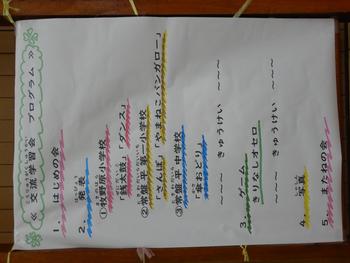 ≪ 交流学習会　プログラム ≫
１．はじめの会
２．発表
①牧野原小学校
「銭太鼓」「ダンス」
②常盤平第一小学校
「さんぽ」「やまねこバンガロー」
③常盤平中学校
「傘おどり」
～～～　きゅうけい　～～～
３．ゲーム
きりなしオセロ
～～～　きゅうけい　～～～
４．写真
５．またねの会